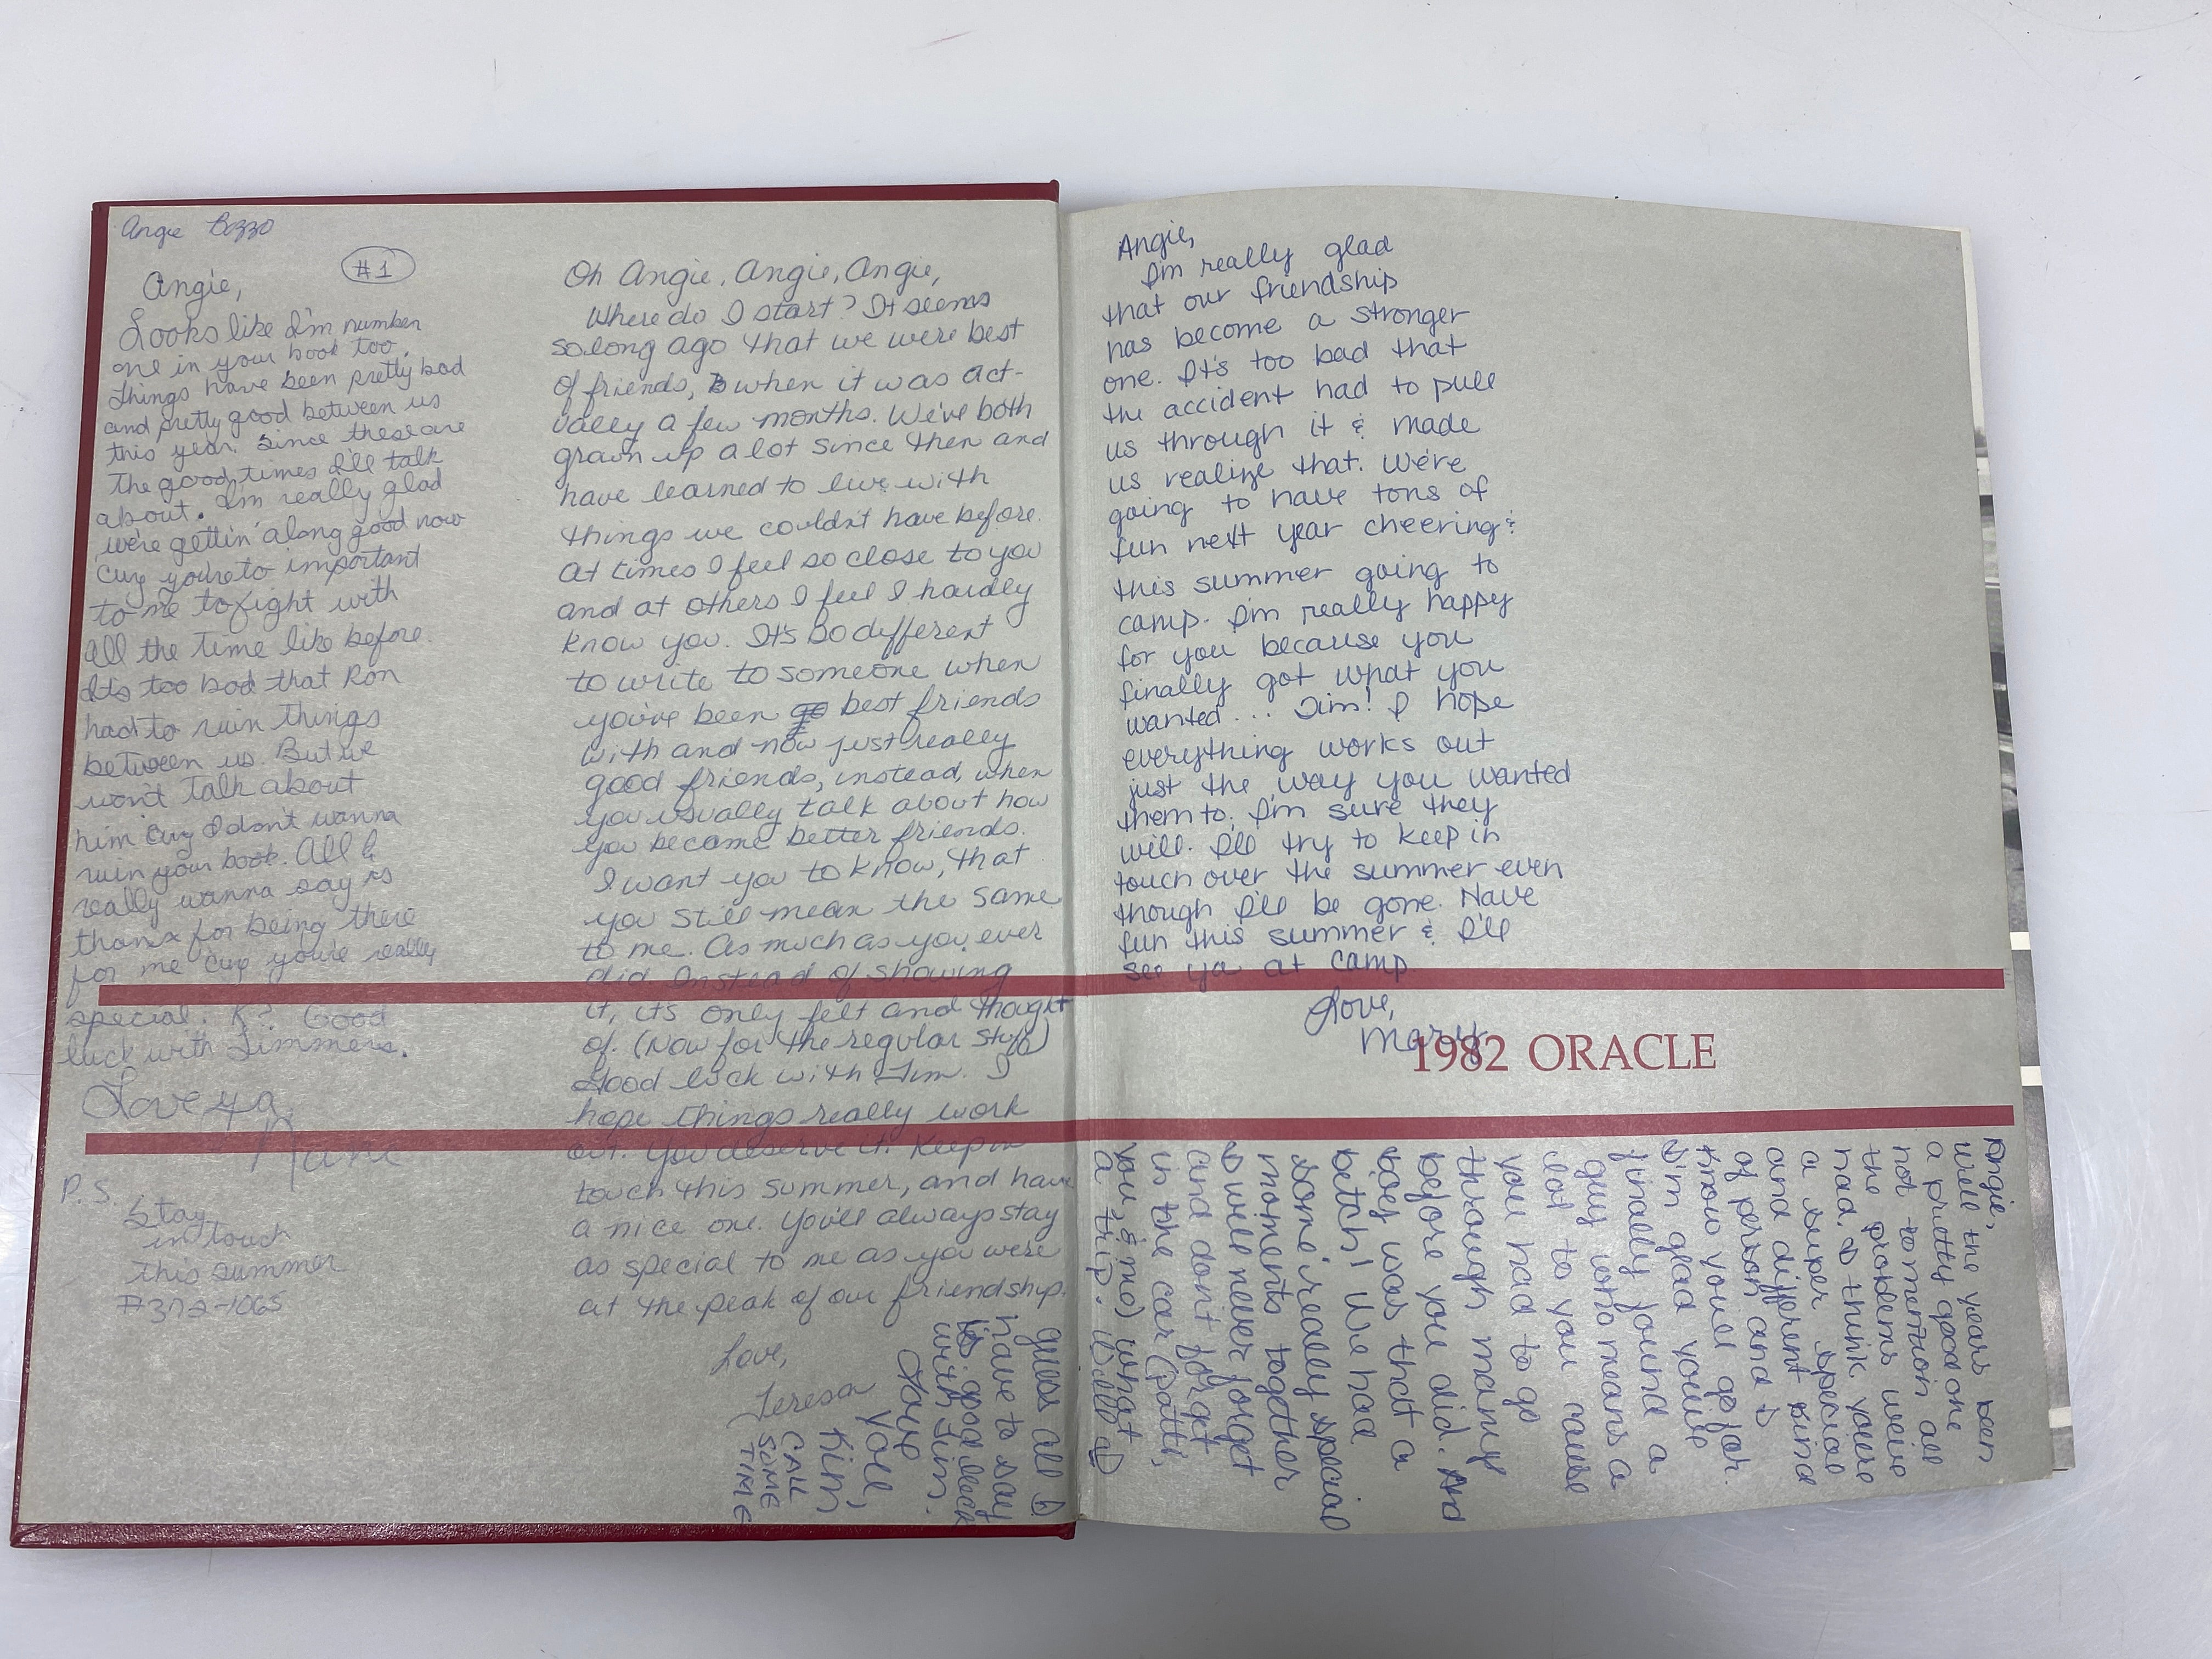 Angie Bozzo
#1
Angie,
Looks like I'm number
one in your book too.
Things have been pretty bad
and pretty good between us
this year. Since these are
the good times I'll talk
about. I'm really glad
we're gettin' along good now
cuz you're to important
to me to fight with
all the time like before.
It's too bad that Ron
had to ruin things
between us. But we
won't talk about
him cuz I don't wanna
ruin your book. All I
really wanna say is
thanx for being there
for me cuz you're really
special. K? Good
luck with Jimmers.
Love ya,
P.S.
Stay
in touch
this summer
#372-1065
Oh Angie, Angie, Angie,
Where do I start? It seems
so long ago that we were best
of friends, when it was act-
ually a few months. We've both
grown up a lot since then and
have learned to live with
things we couldn't have before.
At times I feel so close to you
and at others I feel I hardly
know you. It's so different
to write to someone when
you've been best friends
with and now just really
good friends, instead, when
you usually talk about how
you became better friends.
I want you to know, that
you still mean the same
to me. As much as you ever
did. Instead of showing
it, it's only felt and thought
of. (Now for the regular stuff)
Good luck with Jim. I
hope things really work
out. You deserve it. Keep in
touch this summer, and have
a nice one. You'll always stay
as special to me as you were
at the peak of our friendship.
Love,
Teresa
Angie,
I'm really glad
that our friendship
has become a stronger
one. It's too bad that
the accident had to pull
us through it & made
us realize that. We're
going to have tons of
fun next year cheering &
this summer going to
camp. I'm really happy
for you because you
finally got what you
wanted... Jim! I hope
everything works out
just the way you wanted
them to. I'm sure they
will. I'll try to keep in
touch over the summer even
though I'll be gone. Have
fun this summer & I'll
see ya at camp
Love,
Mary
1982 ORACLE
Angie,
Well the years been
a pretty good one
not to mention all
the problems weive
had. I think youre
a super special
and different kind
of person and I
know youll go far.
I'm glad youve
finally found a
guy who means a
lot to you cause
you had to go
through many
before you did. And
boy was that a
betch! We had
some really special
moments together
I will never forget
and don't forget
in the car (patti,
you, & me) what
a trip. Well I
guess all I
have to say
is good luck
with Jim.
Love
You,
Kim
CALL
SOME
TIME